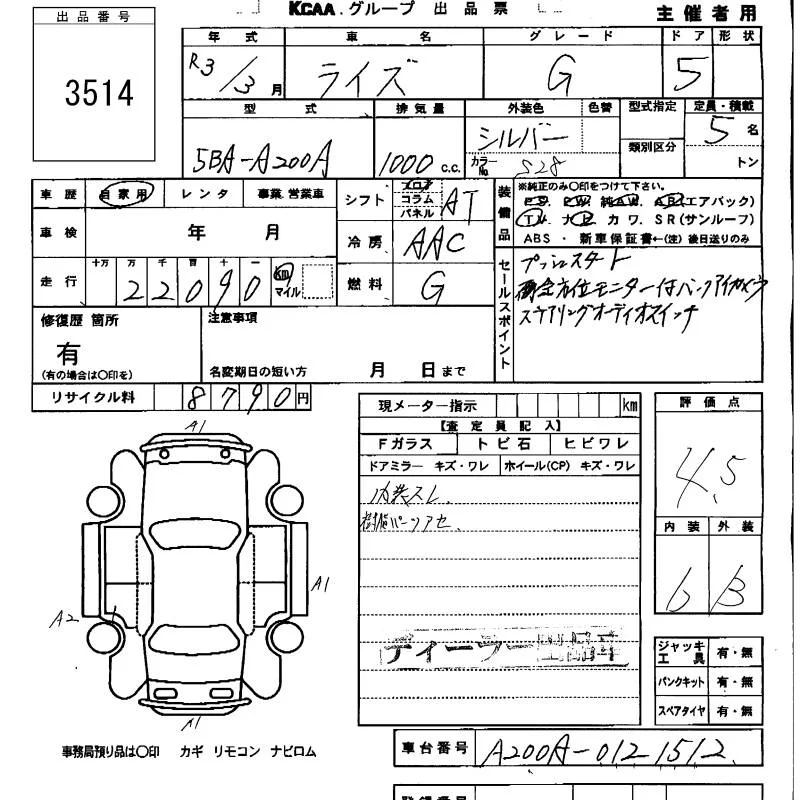 出品番号
3514
KCAA.グループ 出品票
主催者用
年式 車名 グレード ドア 形状
R3/3月 ライズ G 5
型式 排気量 外装色 色替 型式指定 定員・積載
5BA-A200A 1000 c.c. シルバー 5名
カラーNo. S28 類別区分 トン
車歴 自家用 レンタ 事業 営業車
シフト フロア コラム パネル AT
装備品
※純正のみ○印をつけて下さい。
P.S. P.W. 純A.W. A.B.(エアバック)
T.V. ナビ カワ. SR(サンルーフ)
ABS ・ 新車保証書←(注) 後日送りのみ
車検 年 月
冷房 AAC
走行 十万 万 千 百 十 一
22090 km マイル
燃料 G
セールスポイント
プッシュスタート
全方位モニター付バックアイカメラ
ステアリングオーディオスイッチ
修復歴 箇所
有
(有の場合は○印を)
注意事項
名変期日の短い方 月 日まで
リサイクル料 8790円
現メーター指示 km
【査定員記入】
Fガラス トビ石 ヒビワレ
ドアミラー キズ・ワレ ホイール(CP) キズ・ワレ
内装スレ
樹脂パーツアセ
ディーラー出品車
評価点
4.5
内装 外装
b B
ジャッキ工具 有・無
パンクキット 有・無
スペアタイヤ 有・無
A1
A1
A2
A1
事務局預り品は○印 カギ リモコン ナビロム
車台番号 A200A-0121512